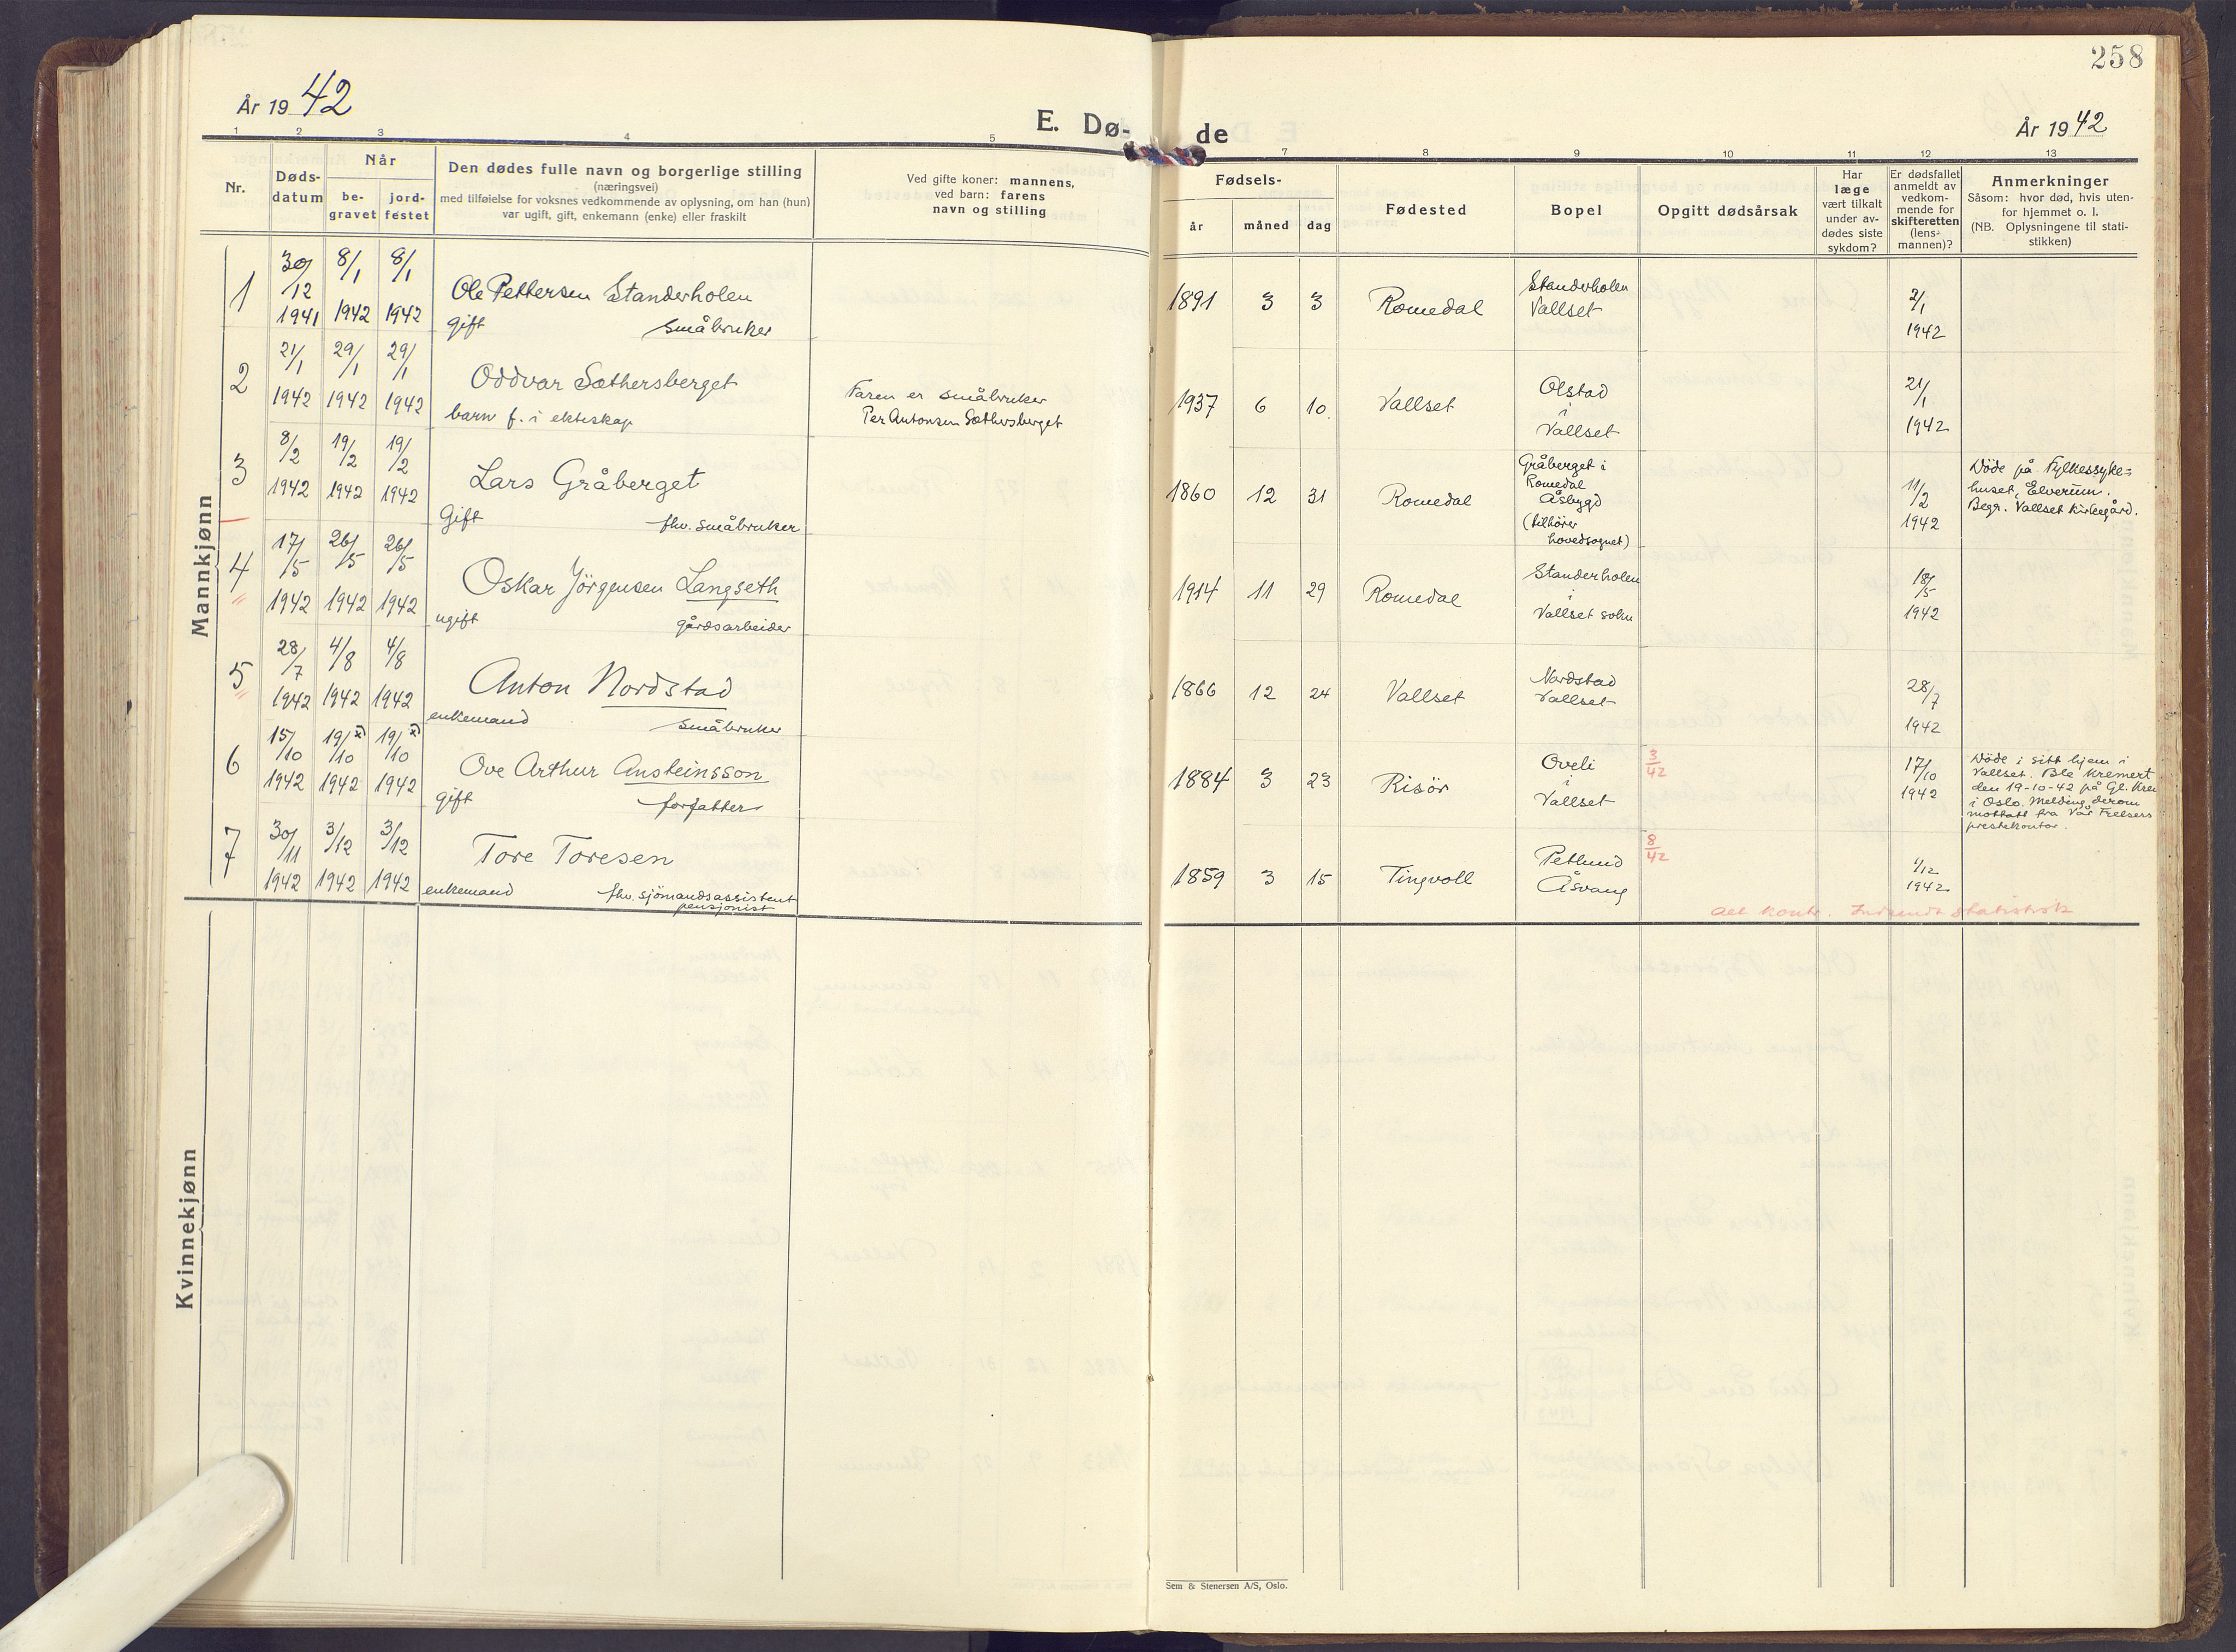 258
År 1942
E. Dø-
de
År 1942
1 2 3 4 5
7 8 9 10 11 12 13
Nr.
Døds-
datum
Når
be-
gravet
jord-
festet
Den dødes fulle navn og borgerlige stilling
(næringsvei)
med tilføielse for voksnes vedkommende av oplysning, om han (hun)
var ugift, gift, enkemann (enke) eller fraskilt
Ved gifte koner: mannens,
ved barn: farens
navn og stilling
Fødsels-
år måned dag
Fødested
Bopel
Opgitt dødsårsak
Har
læge
vært tilkalt
under av-
dødes siste
sykdom?
Er dødsfallet
anmeldt av
vedkom-
mende for
skifteretten
(lens-
mannen)?
Anmerkninger
Såsom: hvor død, hvis uten-
for hjemmet o. l.
(NB. Oplysningene til stati-
stikken)
Mannkjønn
1
30/12 1941
8/1 1942
8/1 1942
Ole Pettersen Standerholen
gift småbruker
1891 3 3
Romedal
Standerholen
Vallset
2/1
1942
2
21/1 1942
29/1 1942
29/1 1942
Oddvar Sæthersberget
barn f. i ekteskap
Faren er småbruker
Per Antonsen Sæthersberget
1937 6 10.
Vallset
Olstad
i
Vallset
21/1
1942
3
8/2 1942
19/2 1942
19/2 1942
Lars Gråberget
Gift fhv. småbruker
1860 12 31
Romedal
Gråberget i
Romedal
Åsbygd
(tilhører
hovedsognet)
11/2
1942
Døde på Fylkessyke=
huset, Elverum.
Begr. Vallset kirkegård.
4
17/5 1942
26/5 1942
26/5 1942
Oskar Jörgensen Langseth
ugift gårdsarbeider
1914 11 29
Romedal
Standerholen
i
Vallset sokn
18/5
1942
5
28/7 1942
4/8 1942
4/8 1942
Anton Nordstad
enkemand småbruker
1866 12 24
Vallset
Nordstad
Vallset
28/7
1942
6
15/10 1942
19/10 x) 1942
19/10 x) 1942
Ove Arthur Ansteinsson
gift forfatter
1884 3 23
Risör
Oveli
i
Vallset
3/42
17/10
1942
Døde i sitt hjem i
Vallset. Ble kremert
den 19-10-42 på Gl. Kre
i Oslo. Melding derom
mottatt fra Vår Frelsers
prestekontor.
7
30/11 1942
3/12 1942
3/12 1942
Tore Toresen
enkemand fhv. sjömandsassistent
pensjonist
1859 3 15
Tingvoll
Petlund
Åsvang
8/42
1/12
1942
Alt kontr. Indsendt statistisk
Kvinnekjønn
Sem & Stenersen A/S, Oslo.